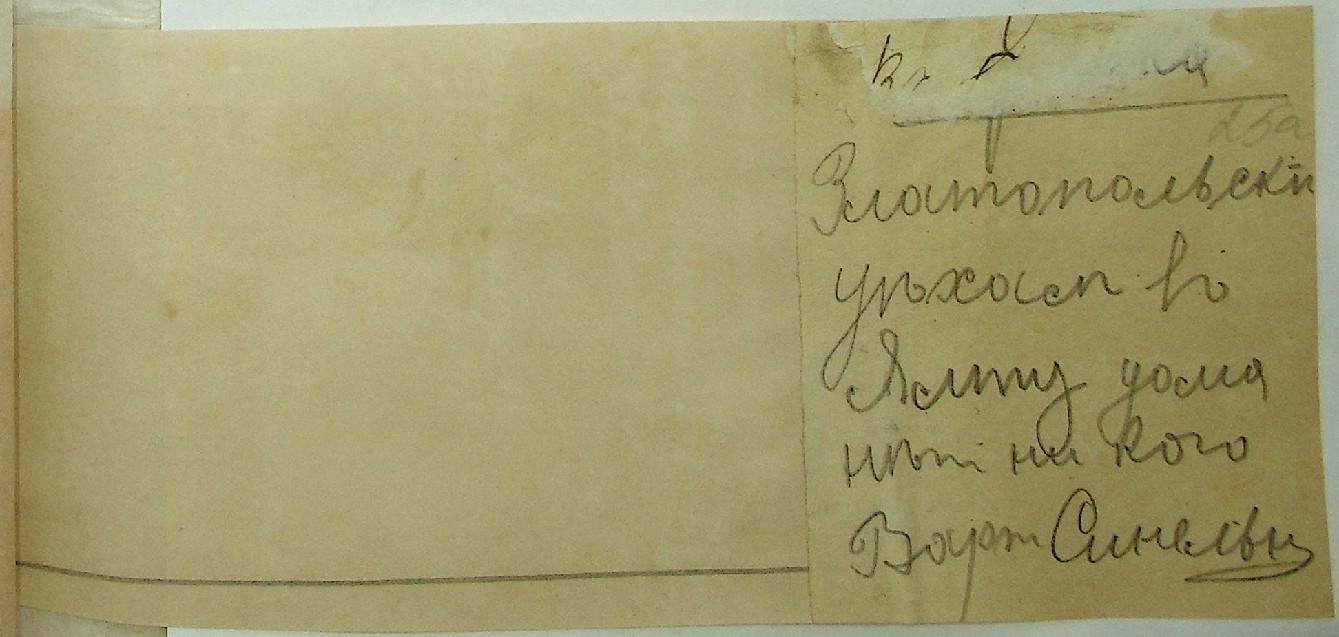 25а
Златопольскій
уѣхалъ въ
Ялту дома
нѣтъ ни кого
Варт Синельн